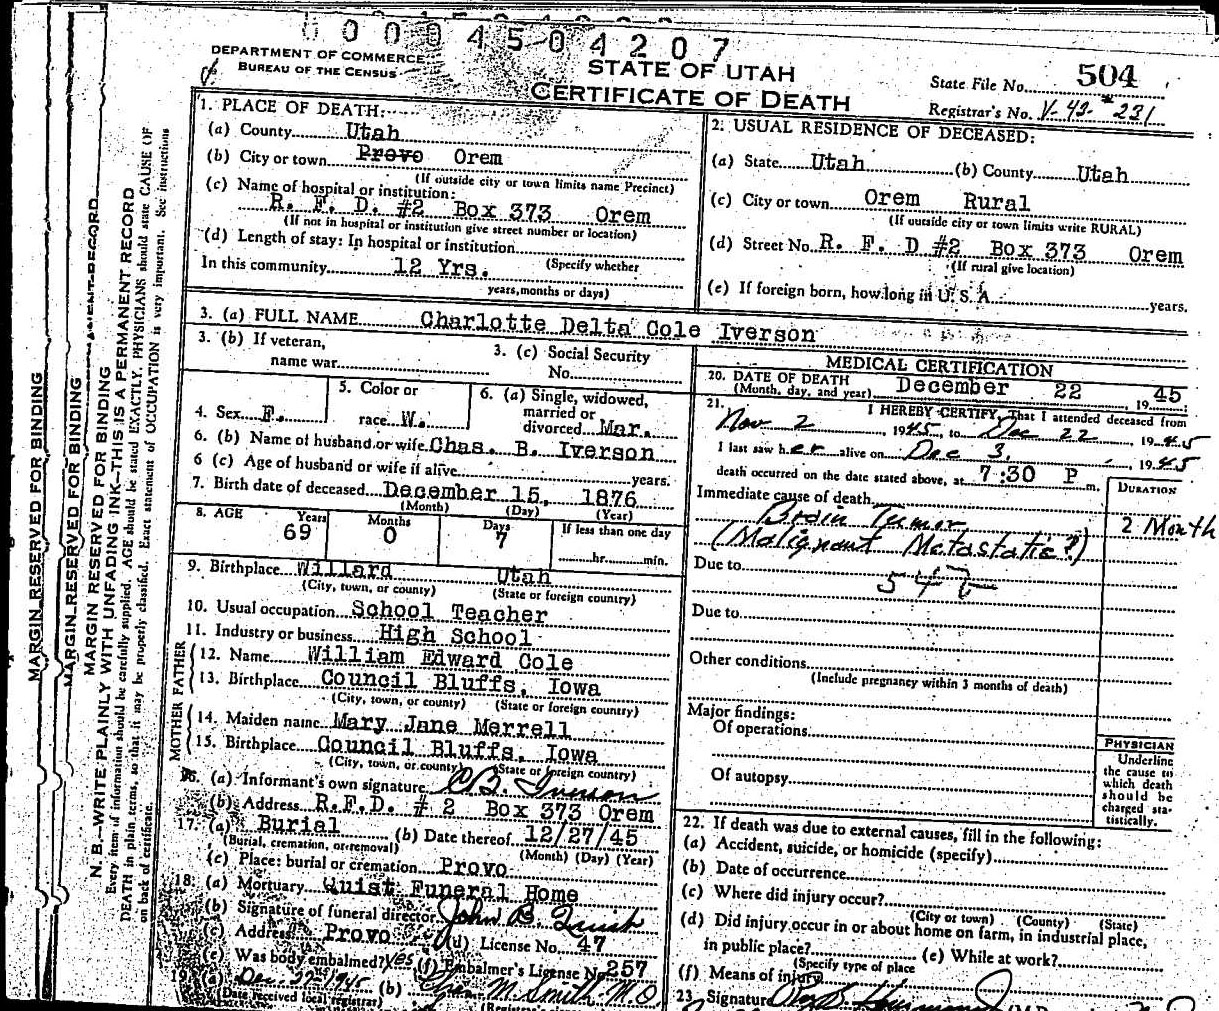 0004504207
DEPARTMENT OF COMMERCE
BUREAU OF THE CENSUS
STATE OF UTAH
CERTIFICATE OF DEATH
State File No. 504
Registrar's No. V-42-*231
1. PLACE OF DEATH:
(a) County Utah
(b) City or town Provo Orem
(If outside city or town limits name Precinct)
(c) Name of hospital or institution:
R. F. D. #2 Box 373 Orem
(If not in hospital or institution give street number or location)
(d) Length of stay: In hospital or institution
(Specify whether
In this community 12 Yrs.
years, months or days)
2. USUAL RESIDENCE OF DECEASED:
(a) State Utah (b) County Utah
(c) City or town Orem Rural
(If outside city or town limits write RURAL)
(d) Street No. R. F. D #2 Box 373 Orem
(If rural give location)
(e) If foreign born, how long in U. S. A. years.
3. (a) FULL NAME Charlotte Delta Cole Iverson
3. (b) If veteran,
name war
3. (c) Social Security
No.
4. Sex F.
5. Color or
race W.
6. (a) Single, widowed,
married or
divorced Mar.
6. (b) Name of husband or wife Chas. B. Iverson
6 (c) Age of husband or wife if alive years.
7. Birth date of deceased December 15, 1876
(Month) (Day) (Year)
8. AGE Years Months Days If less than one day
69 0 7 hr. min.
9. Birthplace Willard Utah
(City, town, or county) (State or foreign country)
10. Usual occupation School Teacher
11. Industry or business High School
FATHER
12. Name William Edward Cole
13. Birthplace Council Bluffs, Iowa
(City, town, or county) (State or foreign country)
MOTHER
14. Maiden name Mary Jane Merrell
15. Birthplace Council Bluffs, Iowa
(City, town, or county) (State or foreign country)
16. (a) Informant's own signature C B. Iverson
(b) Address R.F.D. # 2 Box 373 Orem
17. (a) Burial (b) Date thereof 12/27/45
(Burial, cremation, or removal) (Month) (Day) (Year)
(c) Place: burial or cremation Provo
18. (a) Mortuary Quist Funeral Home
(b) Signature of funeral director John B. Quist
(c) Address Provo (d) License No. 47
(e) Was body embalmed? Yes (f) Embalmer's License No. 257
19. (a) Dec. 22nd 1945 (b) M. Smith M.D
(Date received local registrar)
MEDICAL CERTIFICATION
20. DATE OF DEATH
(Month, day, and year) December 22 1945
21. I HEREBY CERTIFY, That I attended deceased from
Nov 2, 1945, to Dec 22, 1945
I last saw her alive on Dec 3, 1945
death occurred on the date stated above, at 7:30 P m.
DURATION
Immediate cause of death
Brain Tumor 2 Month
(Malignant Metastatic?)
Due to
Due to
Other conditions
(Include pregnancy within 3 months of death)
Major findings:
Of operations
Of autopsy
PHYSICIAN
Underline
the cause to
which death
should be
charged sta-
tistically.
22. If death was due to external causes, fill in the following:
(a) Accident, suicide, or homicide (specify)
(b) Date of occurrence
(c) Where did injury occur?
(City or town) (County) (State)
(d) Did injury occur in or about home on farm, in industrial place,
in public place? (e) While at work?
(Specify type of place
(f) Means of injury
23 Signature
MARGIN RESERVED FOR BINDING
MARGIN RESERVED FOR BINDING
MARGIN RESERVED FOR BINDING
N. B.—WRITE PLAINLY WITH UNFADING INK—THIS IS A PERMANENT RECORD
Every item of information should be carefully supplied. AGE should be stated EXACTLY. PHYSICIANS should state CAUSE OF
DEATH in plain terms, so that it may be properly classified. Exact statement of OCCUPATION is very important. See instructions
on back of certificate.